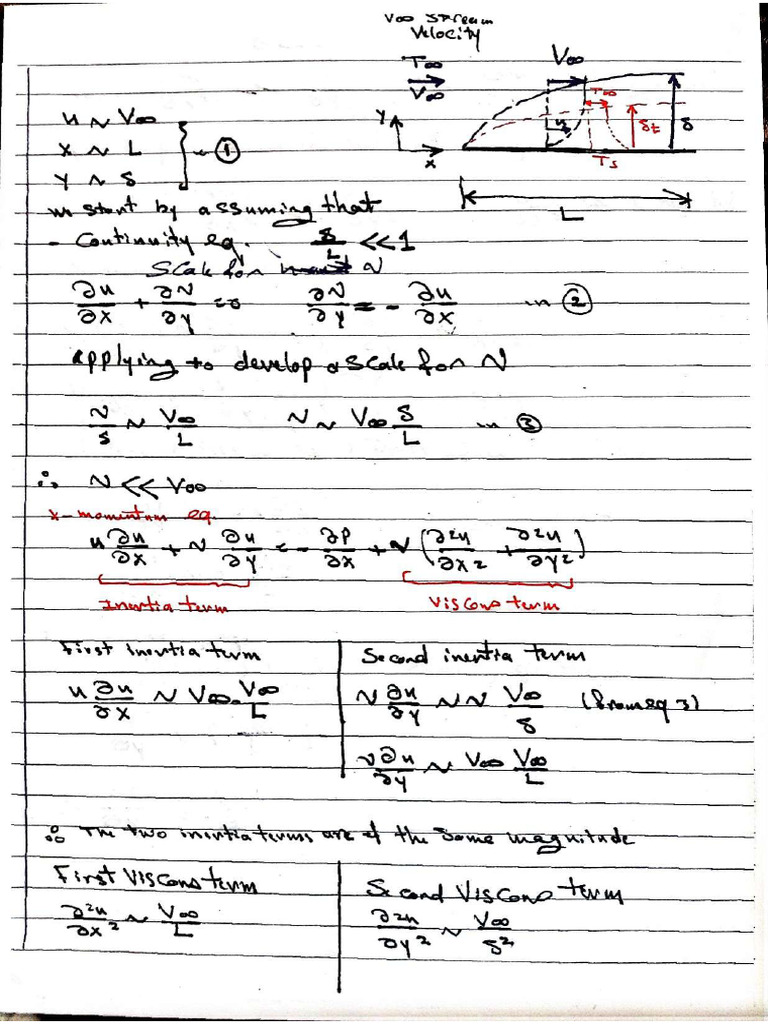 V∞ stream
Velocity
T∞
V∞
V∞
T∞
y
u
δt
δ
x
Ts
L
u ~ V∞
x ~ L
y ~ δ
} → ①
we start by assuming that
- Continuity eq. δ/L <<1
Scale for v
∂u/∂x + ∂v/∂y = 0 ∂v/∂y = - ∂u/∂x → ②
applying to develop a scale for v
v/δ ~ V∞/L v ~ V∞ δ/L → ③
∴ v << V∞
x- momentum eq.
u ∂u/∂x + v ∂u/∂y = - ∂P/∂x + ν (∂²u/∂x² + ∂²u/∂y²)
Inertia term Viscous term
First inertia term
u ∂u/∂x ~ V∞ . V∞/L
Second inertia term
v ∂u/∂y ~ v V∞/δ (from eq 3)
v ∂u/∂y ~ V∞ V∞/L
∴ The two inertia terms are of the same magnitude
First Viscous term
∂²u/∂x² ~ V∞/L
Second Viscous term
∂²u/∂y² ~ V∞/δ²